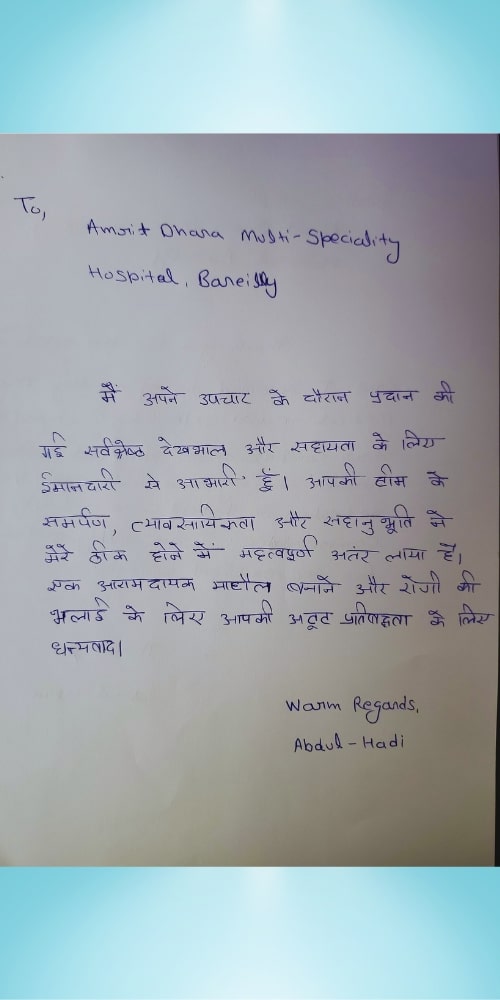 To,
Amrit Dhara Multi-Speciality
Hospital, Bareilly
मैं अपने उपचार के दौरान प्रदान की
गई सर्वश्रेष्ठ देखभाल और सहायता के लिए
ईमानदारी से आभारी हूँ। आपकी टीम के
समर्पण, व्यावसायिकता और सहानुभूति ने
मेरे ठीक होने में महत्वपूर्ण अंतर लाया है।
एक आरामदायक माहौल बनाने और रोगी की
भलाई के लिए आपकी अटूट प्रतिबद्धता के लिए
धन्यवाद।
Warm Regards,
Abdul-Hadi